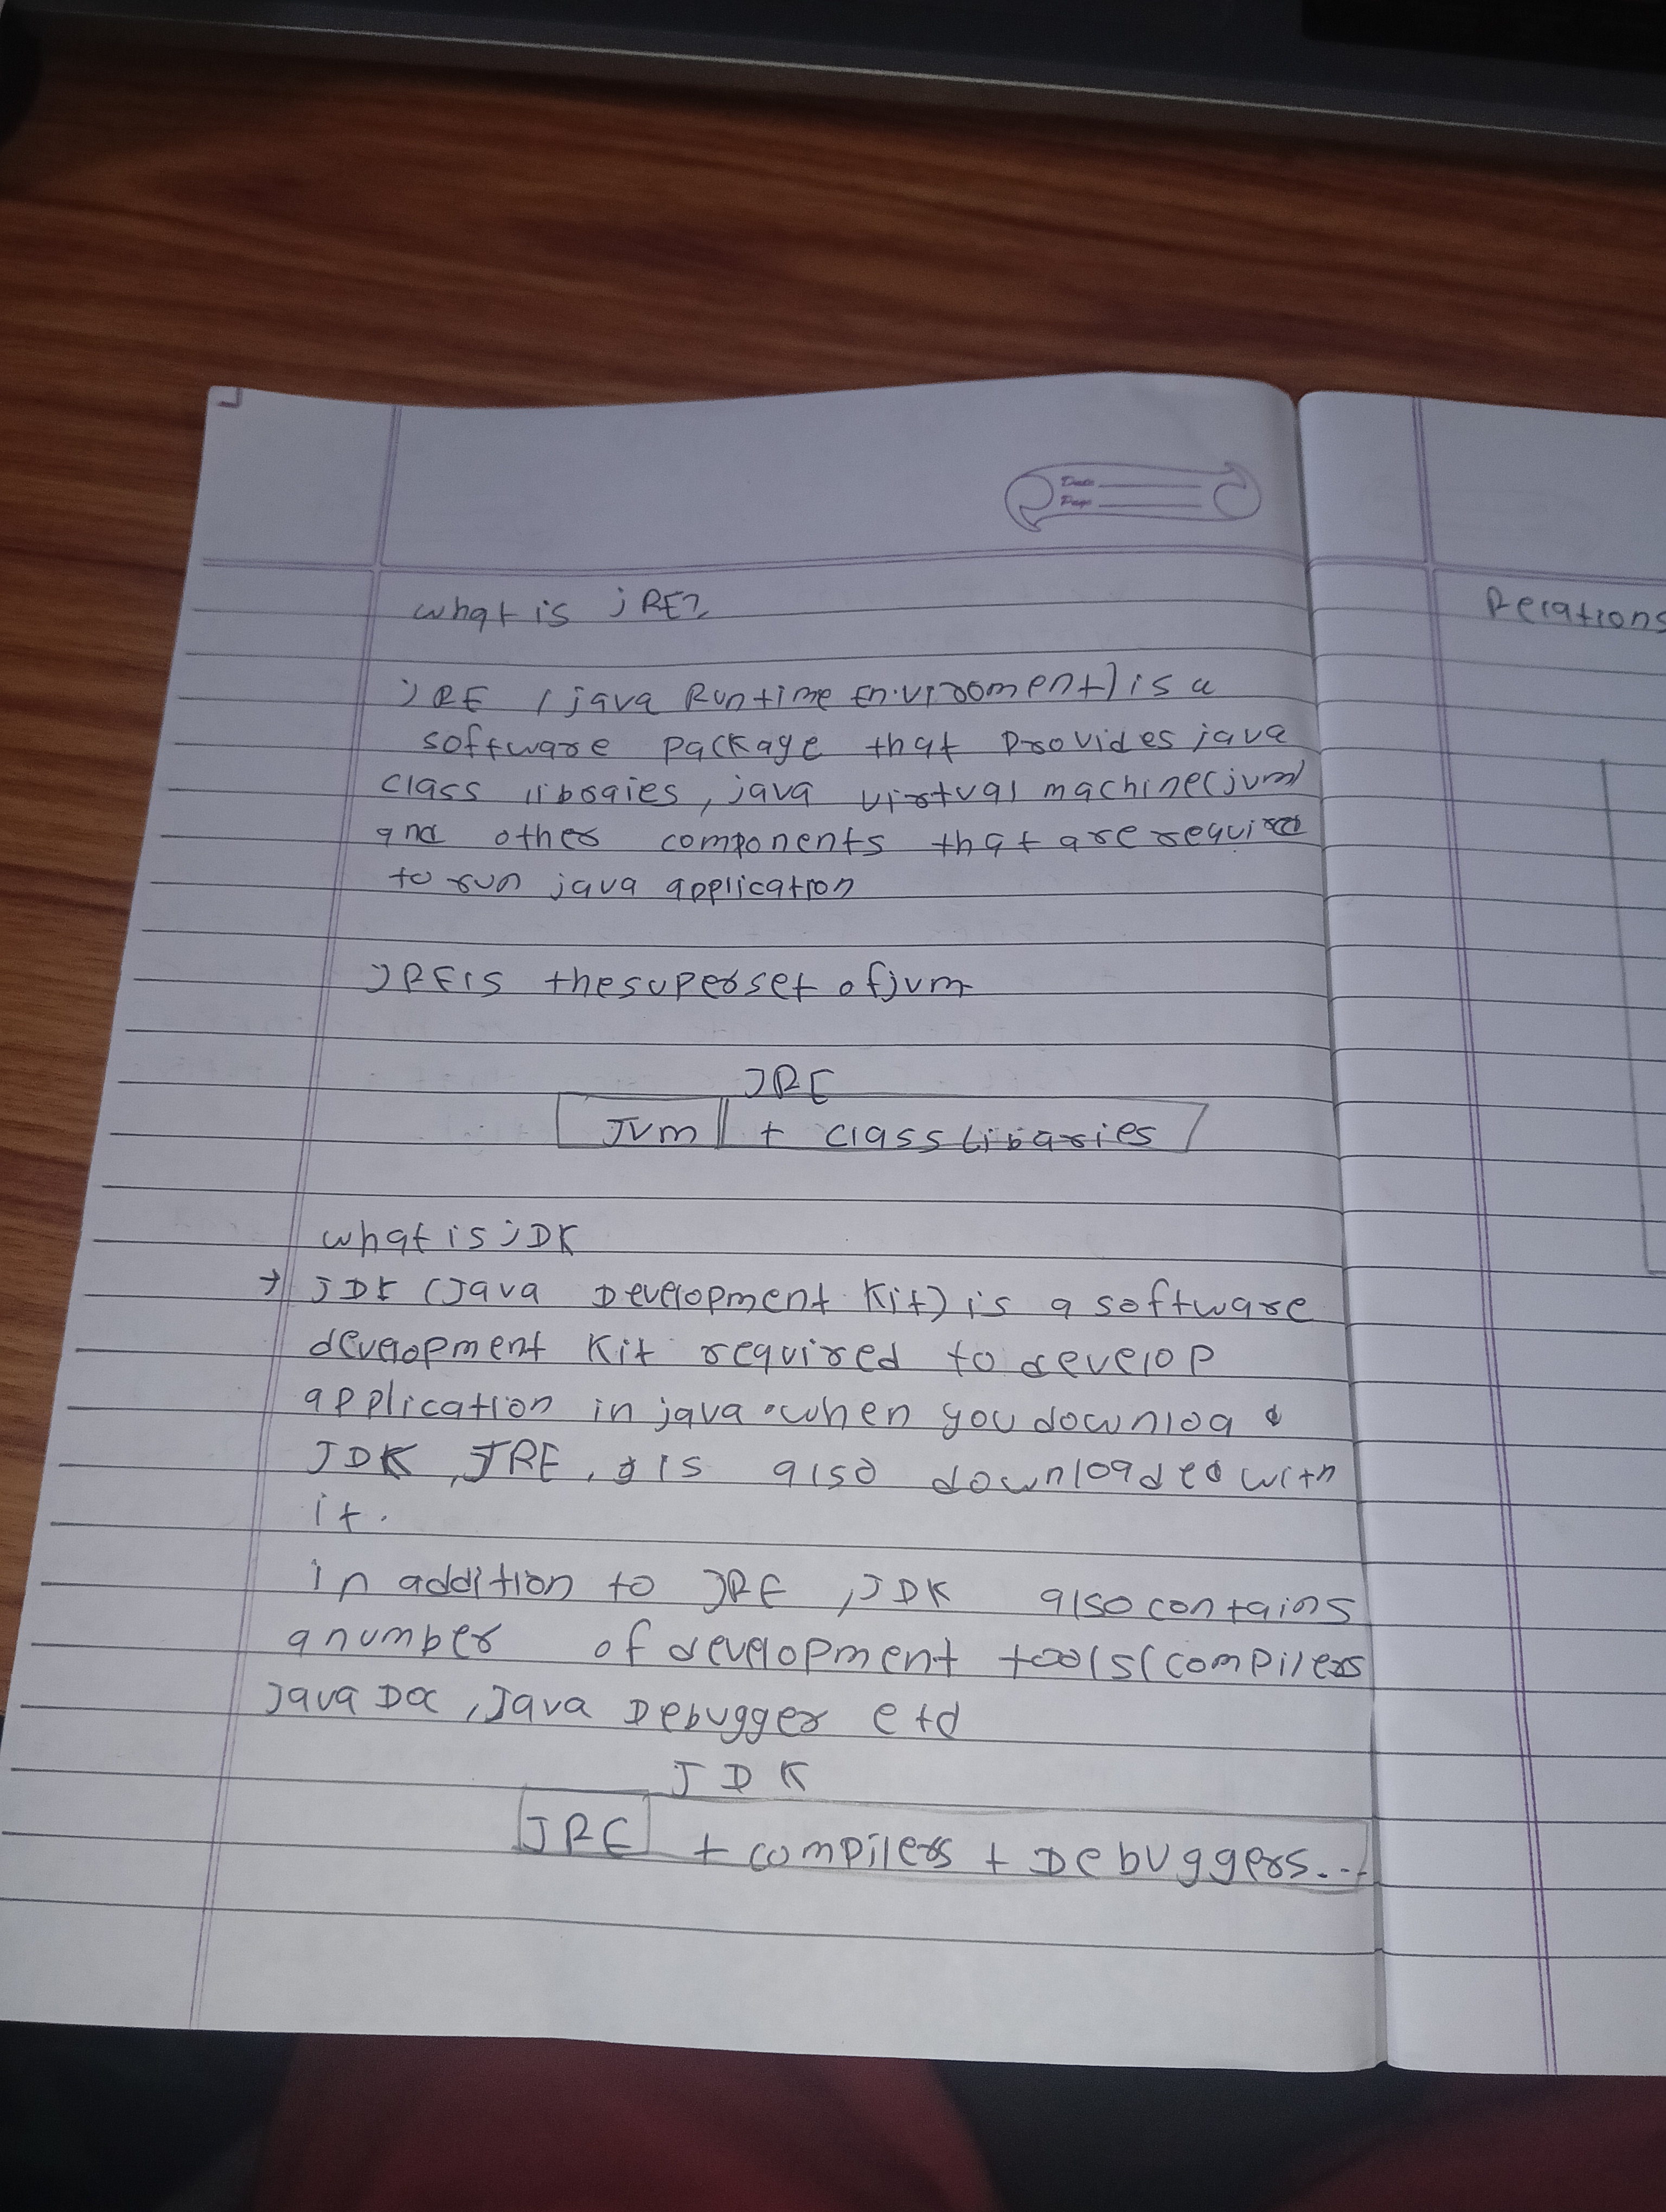 Date
Page
what is jRE?
JRE (java Runtime Envirooment) is a
software package that provides java
class libraies, java virtual machine(jvm)
and other components that are required
to run java application
JRE is the superset of jvm
JRE
Jvm + class libaries
what is jDK
→ JDK (Java Development Kit) is a software
development Kit required to develop
application in java. when you downloa d
JDK, JRE, is also downloaded with
it.
in addition to JRE, JDK also contains
a number of development tools (compilers
Java Doc, Java Debugger etc)
JDK
JRE + compilers + Debuggers...
Relations